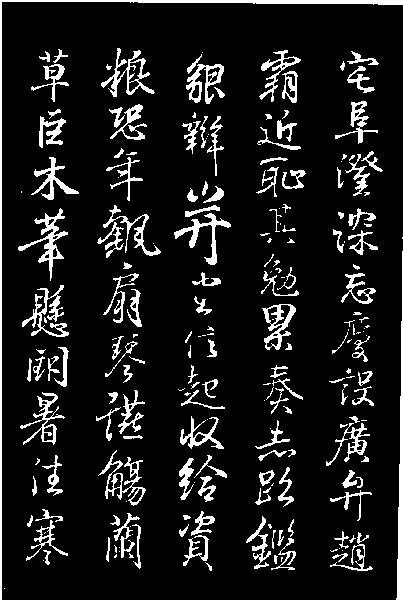 宅阜澄深忘慶設廣弁趙
霸近恥其勉累奏志鑑
貌辨并信起收給資
粮恐年扇琴讌觴蘭
草巨木華懸朗暑往寒